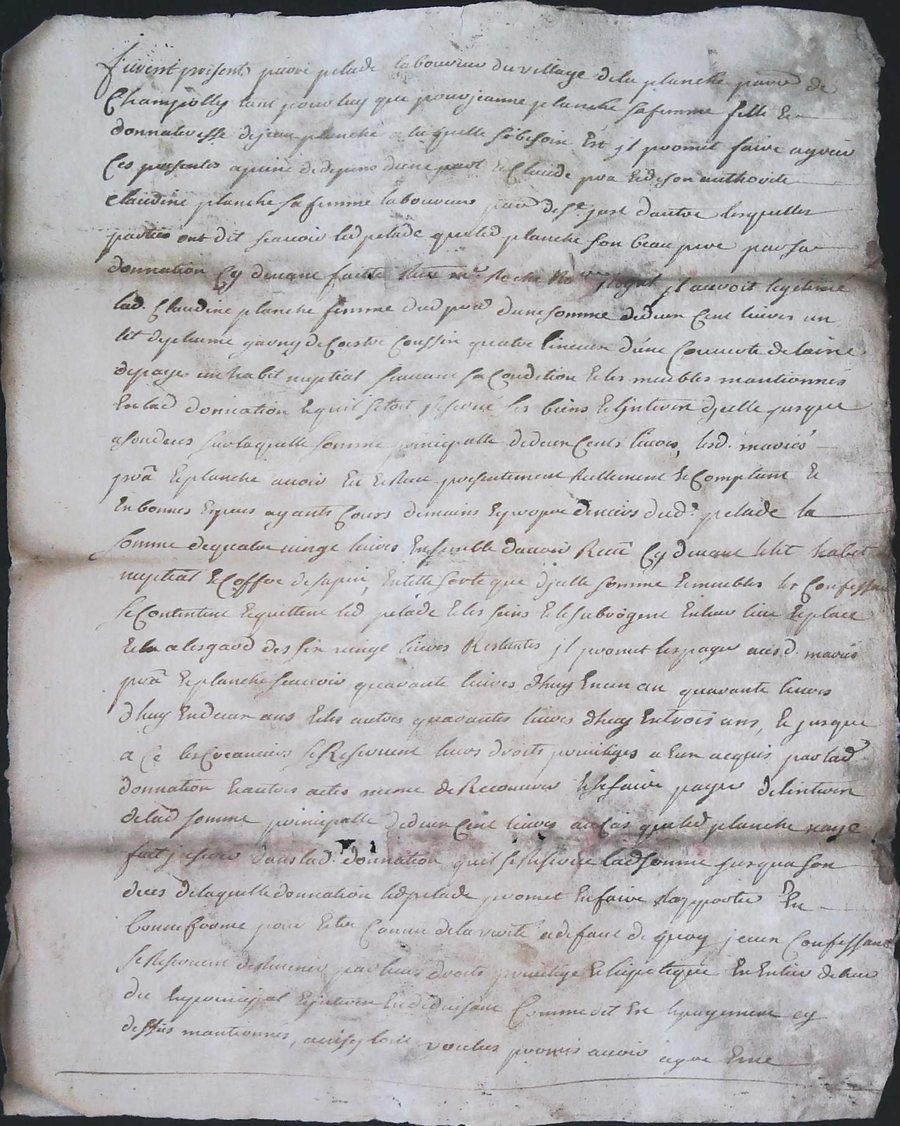 furent presents pierre pelade laboureur du village de la planche parr. de
Champolly tant pour luy que pour jeanne planche sa femme fille et
donnateresse de jean planche a laquelle sy besoin est il promet faire agreer
Ces presentes a peine de depens d'une part et Claude pra et de son authorité
claudine planche sa femme laboureurs parr de St just d'autre lesquelles
parties ont dit scavoir led pelade que led planche son beau pere par sa
donnation cy devant faitte il avoit legitimé
lad. Claudine planche femme dud pra d'une somme de deux Cent livres un
lit de plume garny de Coestre Coussin quatre linceux d'une Couverte de laine
depays un habit nuptial suivant sa Condition et les meubles mantionnés
En lad donnation et quil setoit reservé les biens et jnterets djcelle jusque
a son deces sur laquelle somme principalle de deux Cents livres, lesd. mariés
pra et planche avoir Eu et Receu presentement reellement et Comptant et
En bonnes Especes ayants Cours des mains et propre deniers dud. pelade la
somme de quatre vingt livres Ensemble d'avoir Receu Cy devant led lit habit
nuptial et Coffre de sapin, En telle sorte que djcelle somme et meubles ils Confessent
se Contentent et quittent led pelade et les siens et le subrogent En leur lieu et place
et a lesgard des six vingt livres Restantes jl promet les payer ausd. mariés
pra et planche scavoir quarante livres d'huy En un an quarante livres
d'huy En deux ans et les autres quarantes livres d'huy En trois ans, et jusque
a Ce les Creanciers se Reservent leurs droits privileges a Eux acquis par lad
donnation et autres actes meme de Recouvrer et se faire payer de linterest
de lad somme principalle de deux Cent livres au Cas que led planche naye
fait jnserer dans lad. donnation quil se reserve lad somme jusqua son
deces de laquelle donnation led pelade promet En faire Rapporter En
bonne forme pour Estre Connue de la verité a defaut de quoy jceux Confessants
se reservent de revenir par leurs droits privilege et hipoteque En Entier de leur
du En principal et jnterest En deduisant Comme dit Est le payement cy
dessus mantionnés, voulus promis avoir agre Eme